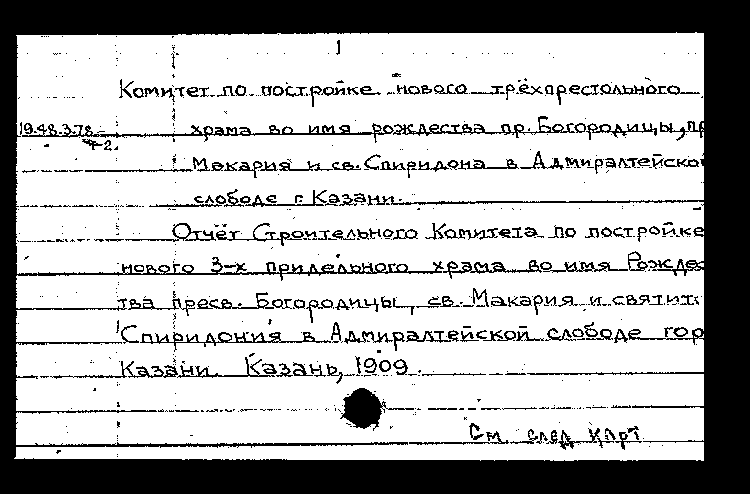 1
Комитет по постройке нового трёхпрестольного
19.48.3.78-
храма во имя рождества пр. Богородицы, пр
Макария и св. Спиридона в Адмиралтейской
слободе г. Казани.
Отчёт Строительного Комитета по постройке
нового 3-х придельного храма во имя Рождес
тва пресв. Богородицы, св. Макария и святит.
Спиридония в Адмиралтейской слободе гор
Казани. Казань, 1909.
См. след карт